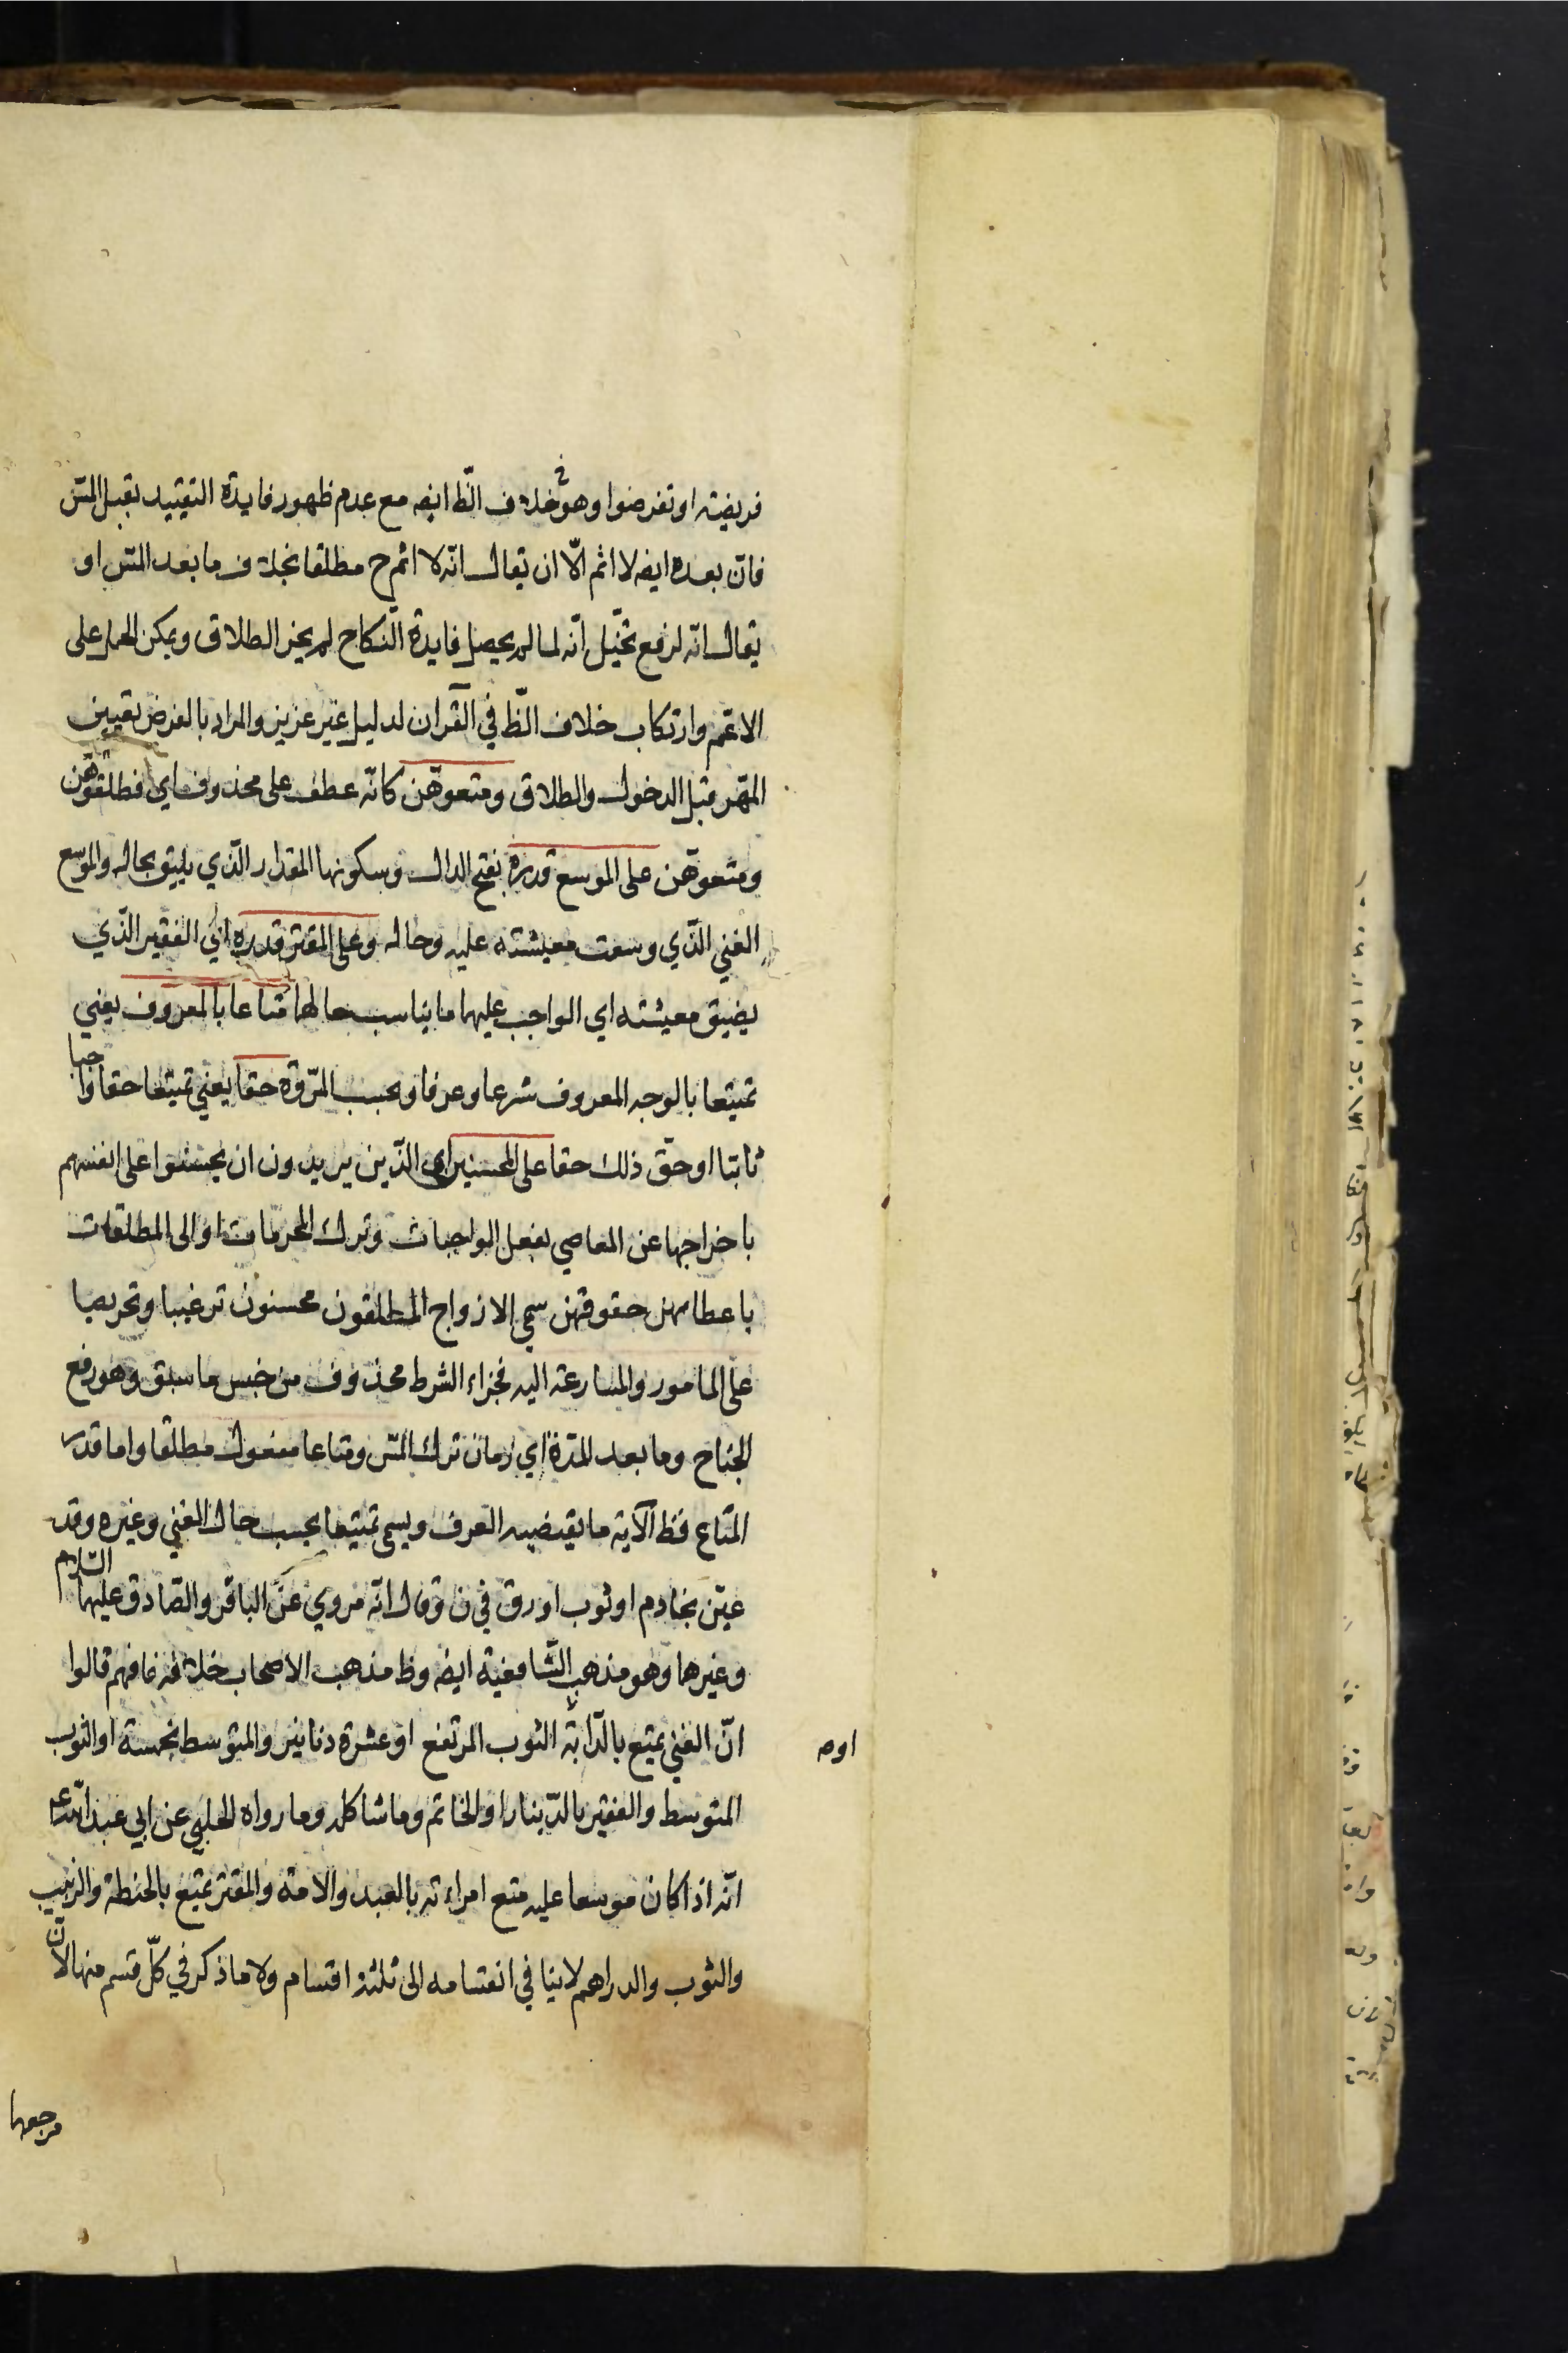 فريضة او تفرضوا وهو خلاف الظ ايضه مع عدم ظهور فايدة التقييد بقبل المسّ
فان بعده ايضه لا اثم الّا ان يقال انّه لا اثم ح مطلقا بخلاف ما بعد المسّ او
يقال انّه لرفع تخيّل انّه لما لم يحصل فايدة النّكاح لم يجز الطلاق ويمكن الحمل على
الاعمّ وارتكاب خلاف الظّ في القرآن لدليل غير عزيز والمراد بالفرض تعيين
المهر قبل الدخول والطلاق ومتعوهّن كانّه عطف على محذوف اي فطلّقوهّن
ومتعوهّن على الموسع قدره بفتح الدال وسكونها المقدار الّذي يليق بحاله والموسع
الغني الذّي وسعت معيشته عليه وحاله وعلى المقتر قدره اي الفقير الذّي
يضيق معيشته اي الواجب عليهما ما يناسب حالهما متاعا بالمعروف يعني
تمتيعا بالوجه المعروف شرعا وعرفا وبحسب المرّوة حقا يعني تمتيعا حقا واجبا
ثابتا او حقّ ذلك حقا على المحسنين اي الذّين يريدون ان يحسنوا على انفسهم
باخراجها عن المعاصي بفعل الواجبات وترك المحرمات او الى المطلقات
باعطائهن حقوقهن سمي الازواج المطلقون محسنون ترغيبا وتحريصا
على المامور والمسارعة اليه فجزاء الشرط محذوف من جنس ما سبق وهو رفع
الجناح وما بعد المدة اي زمان ترك المسّ ومتاعا مفعول مطلقا واما قدر
المتاع فظ الآية ما يقتضيه العرف ويسمى تمتيعا بحسب حال الغني وغيره وقد
عيّن بخادم او ثوب او رق في ن وقال انّه مروي عن الباقر والصّادق عليهما السّلام
وغيرهما وهو مذهب الشّافعية ايضه وظ مذهب الاصحاب خلافه فانهم قالوا
انّ الغني يمتع بالدّابّة الثوب المرتفع او عشرة دنانير والمتوسط بخمسة او الثوب
او
المتوسط والفقير بالدّينار او الخاتم وما شاكله وما رواه الحلبي عن ابي عبد اللّه ع
انّه اذا كان موسعا عليه متع امراءته بالعبد والامة والمقتر يمتع بالحنطة والزبيب
والثوب والدراهم لا ينافي انقسامه الى ثلثة اقسام ولا ما ذكر في كلّ قسم منها لانّ
مرجعها